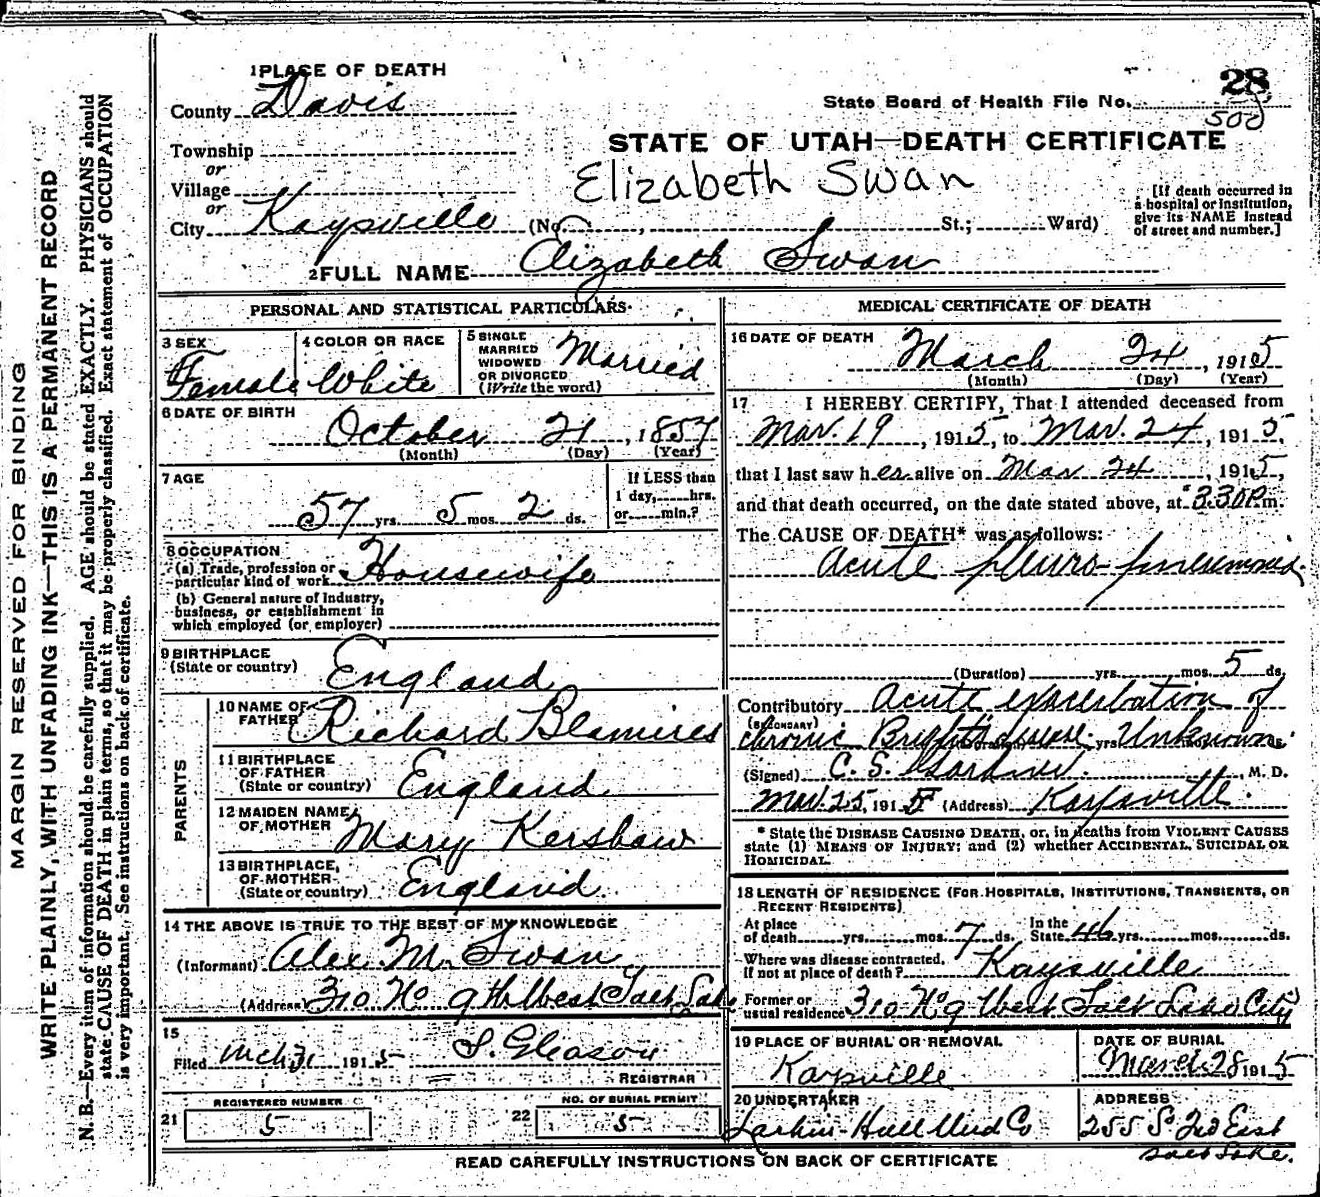 MARGIN RESERVED FOR BINDING
WRITE PLAINLY, WITH UNFADING INK—THIS IS A PERMANENT RECORD
N. B.—Every item of information should be carefully supplied. AGE should be stated EXACTLY. PHYSICIANS should
state CAUSE OF DEATH in plain terms, so that it may be properly classified. Exact statement of OCCUPATION
is very important. See instructions on back of certificate.
1 PLACE OF DEATH
County Davis
Township
or
Village
or
City Kaysville (No. , St.; Ward)
28
State Board of Health File No.
500
STATE OF UTAH—DEATH CERTIFICATE
Elizabeth Swan
[If death occurred in
a hospital or institution,
give its NAME instead
of street and number.]
2 FULL NAME Elizabeth Swan
PERSONAL AND STATISTICAL PARTICULARS
3 SEX
Female
4 COLOR OR RACE
White
5 SINGLE
MARRIED
WIDOWED
OR DIVORCED
(Write the word)
Married
6 DATE OF BIRTH
October 21, 1857
(Month) (Day) (Year)
7 AGE
57 yrs. 5 mos. 2 ds.
If LESS than
1 day, hrs.
or min.?
8 OCCUPATION
(a) Trade, profession or
particular kind of work Housewife
(b) General nature of Industry,
business, or establishment in
which employed (or employer)
9 BIRTHPLACE
(State or country) England
PARENTS
10 NAME OF
FATHER Richard Blamires
11 BIRTHPLACE
OF FATHER
(State or country) England
12 MAIDEN NAME
OF MOTHER Mary Kershaw
13 BIRTHPLACE
OF MOTHER
(State or country) England
14 THE ABOVE IS TRUE TO THE BEST OF MY KNOWLEDGE
(Informant) Alex M. Swan
(Address) 310 No 9th West Salt Lake
15
Filed Mch 31 1915 S. Gleason
REGISTRAR
21 REGISTERED NUMBER
5
22 NO. OF BURIAL PERMIT
5
MEDICAL CERTIFICATE OF DEATH
16 DATE OF DEATH
March 24, 1915
(Month) (Day) (Year)
17 I HEREBY CERTIFY, That I attended deceased from
Mar. 19, 1915, to Mar. 24, 1915,
that I last saw her alive on Mar 24, 1915,
and that death occurred, on the date stated above, at 3.30 P.m.
The CAUSE OF DEATH* was as follows:
Acute pleuro-pneumonia
(Duration) yrs. mos. 5 ds.
Contributory Acute exacerbation of
(SECONDARY)
chronic Bright's disease. (Duration) yrs. Unknown ds.
(Signed) C. S. Gardner, M. D.
Mar. 25, 1915 (Address) Kaysville.
* State the DISEASE CAUSING DEATH, or, in deaths from VIOLENT CAUSES
state (1) MEANS OF INJURY; and (2) whether ACCIDENTAL, SUICIDAL OR
HOMICIDAL.
18 LENGTH OF RESIDENCE (FOR HOSPITALS, INSTITUTIONS, TRANSIENTS, OR
RECENT RESIDENTS)
At place
of death yrs. mos. 7 ds. In the
State 46 yrs. mos. ds.
Where was disease contracted,
If not at place of death? Kaysville
Former or
usual residence 310 No 9 West Salt Lake City
19 PLACE OF BURIAL OR REMOVAL
Kaysville
DATE OF BURIAL
March 28 1915
20 UNDERTAKER
Larkin-Hull Und Co
ADDRESS
255 So 2nd East
Salt Lake.
READ CAREFULLY INSTRUCTIONS ON BACK OF CERTIFICATE